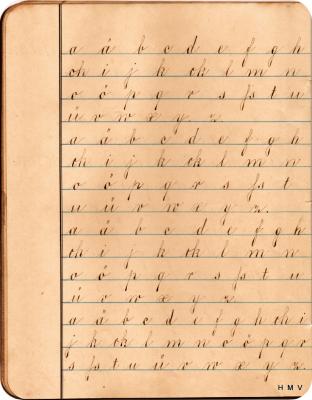 a ä b c d e f g h
ch i j k ck l m n
o ö p q r s ſs t u
ü v w x y z.
a ä b c d e f g h
ch i j k ck l m n
o ö p q r s ſs t
u ü v w x y z.
a ä b c d e f g h
ch i j k ck l m n
o ö p q r s ſs t u
ü v w x y z
a ä b c d e f g h ch i
j k ck l m n o ö p q r
s ſs t u ü v w x y z.
H M V